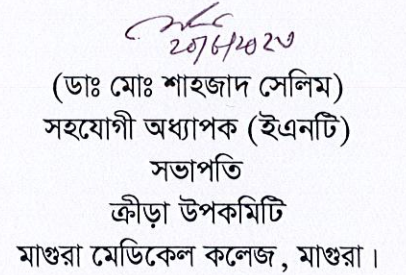 20/6/2023
(ডাঃ মোঃ শাহজাদ সেলিম)
সহযোগী অধ্যাপক (ইএনটি)
সভাপতি
ক্রীড়া উপকমিটি
মাগুরা মেডিকেল কলেজ, মাগুরা।